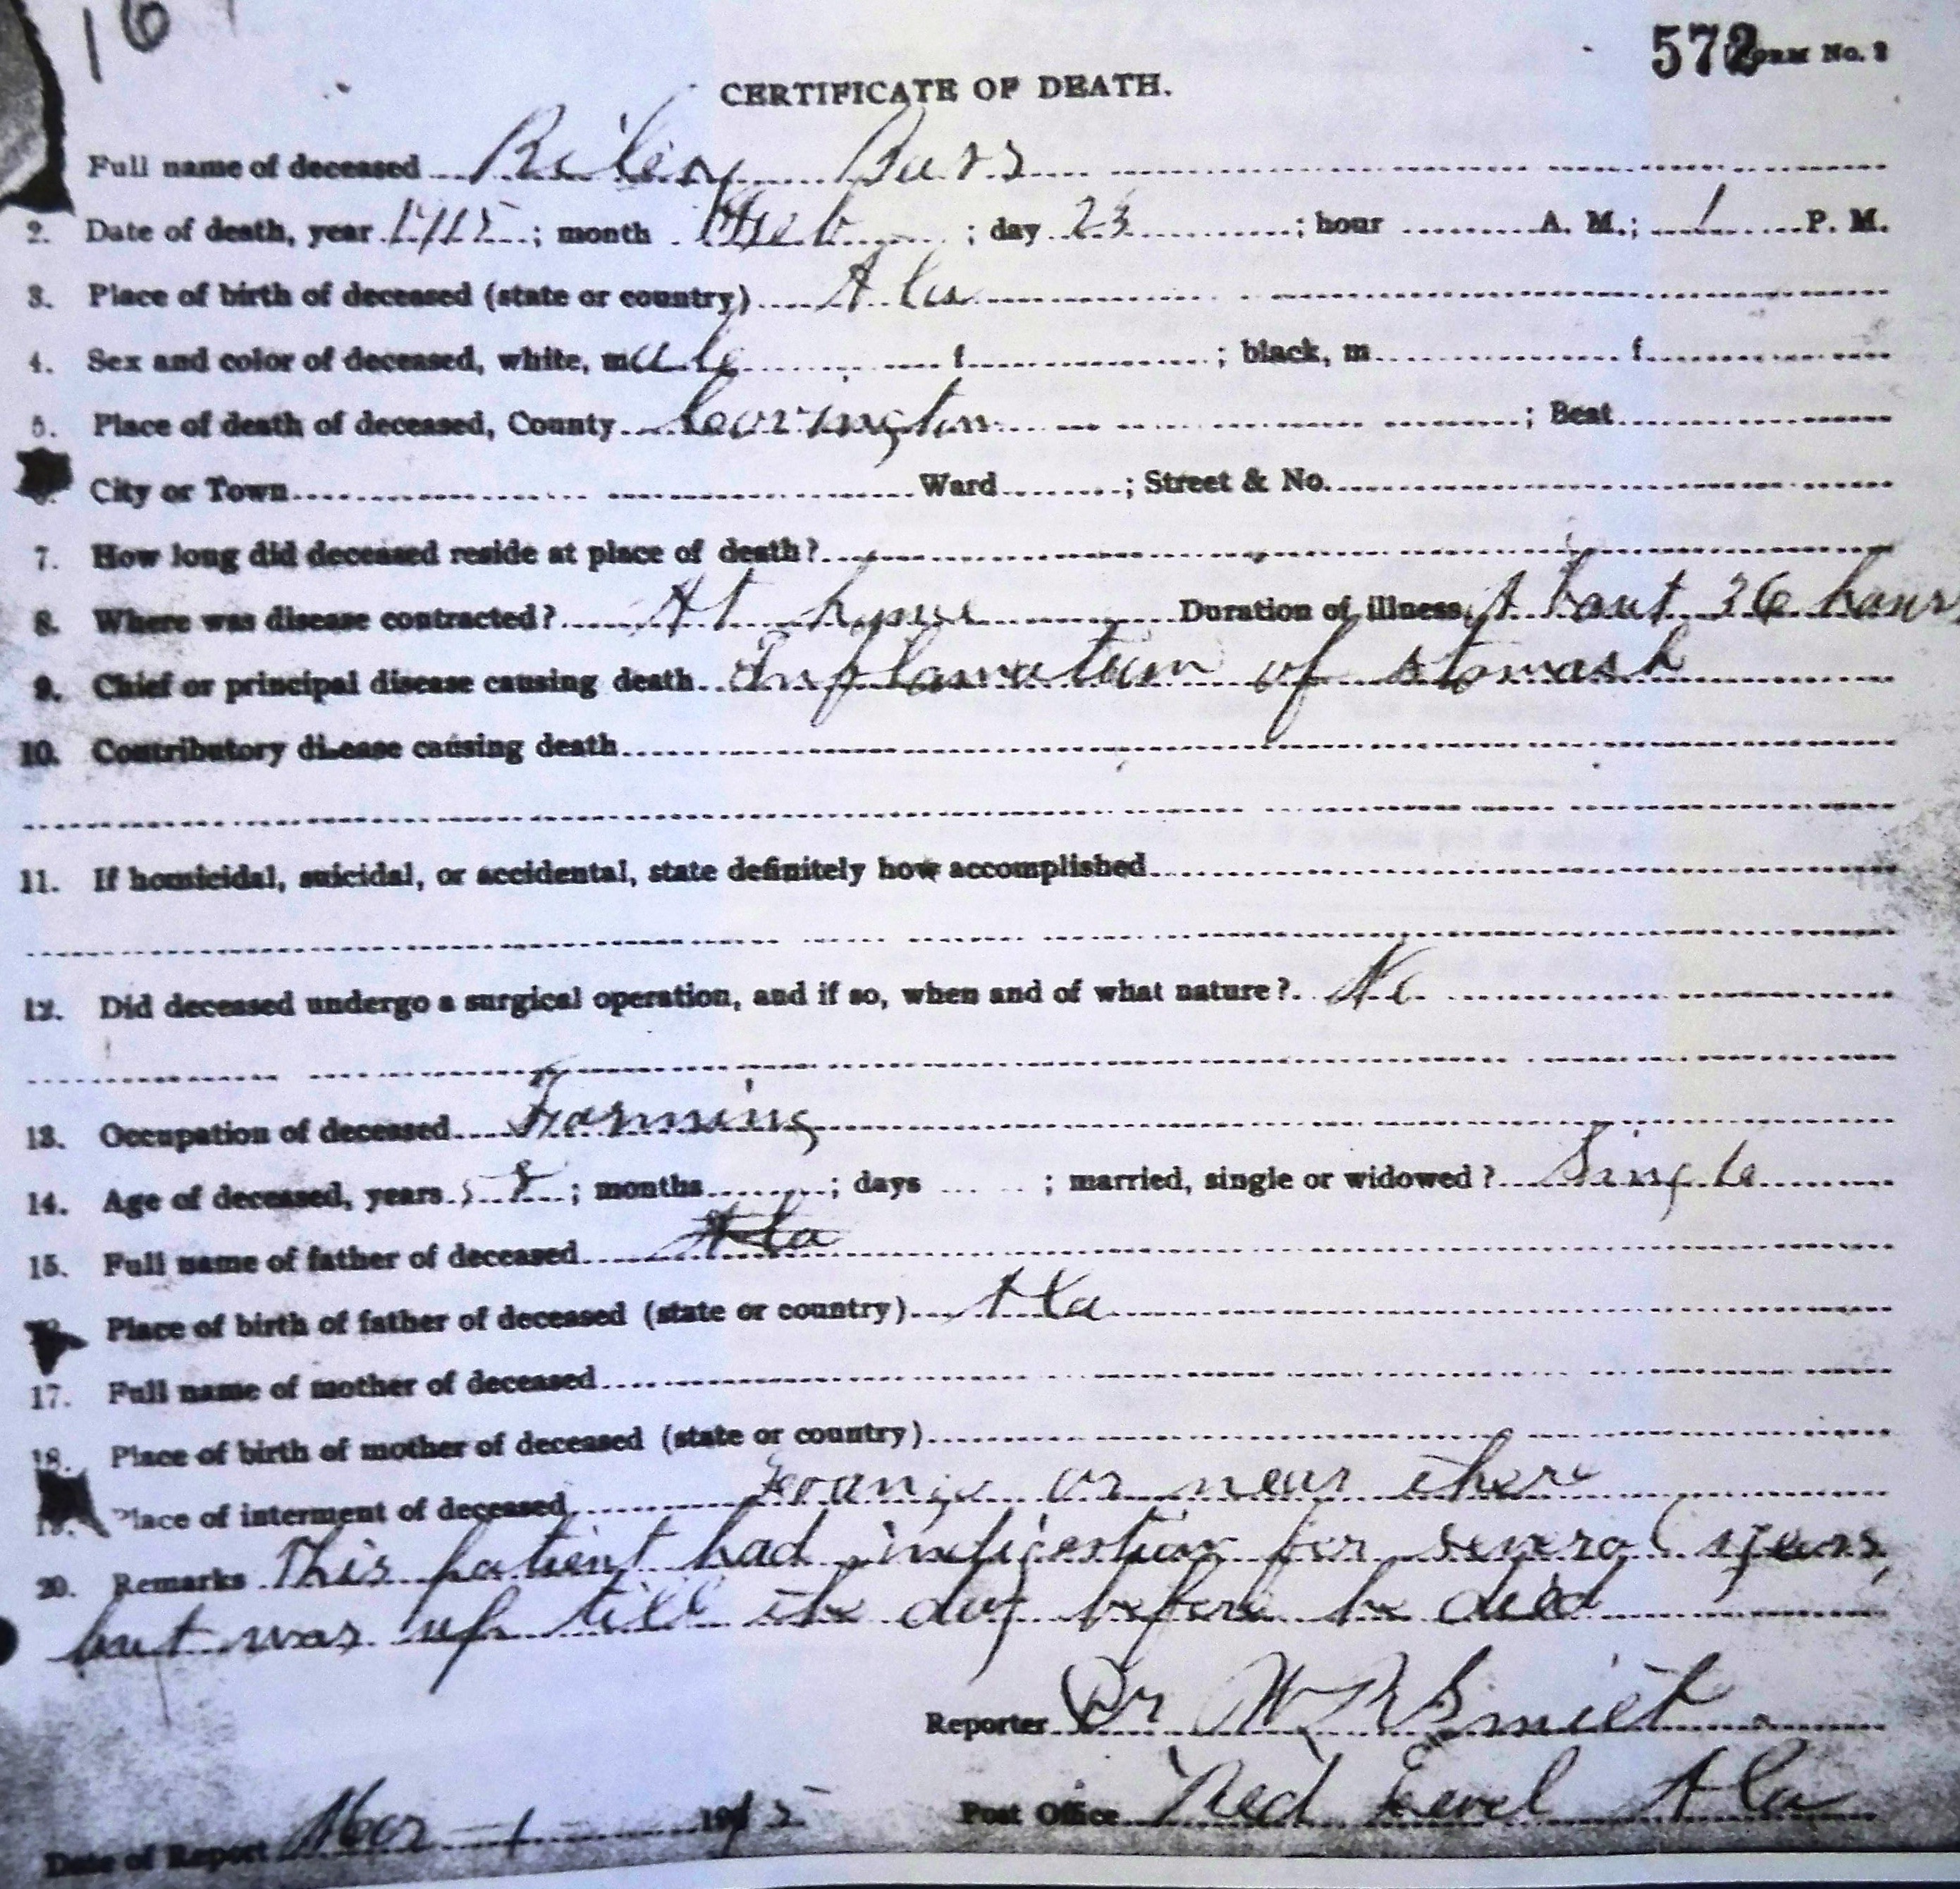 16
572 FORM No. 2
CERTIFICATE OF DEATH.
Full name of deceased Riley
2. Date of death, year 1915; month Feb; day 23; hour A. M.; 1 P. M.
3. Place of birth of deceased (state or country) Ala
4. Sex and color of deceased, white, male f; black, m f
5. Place of death of deceased, County Covington; Beat
City or Town Ward; Street & No.
7. How long did deceased reside at place of death?
8. Where was disease contracted? At home Duration of illness About 36 hours
9. Chief or principal disease causing death Inflamation of stomach
10. Contributory disease causing death
11. If homicidal, suicidal, or accidental, state definitely how accomplished
12. Did deceased undergo a surgical operation, and if so, when and of what nature? No
13. Occupation of deceased Farming
14. Age of deceased, years 58; months; days; married, single or widowed? Single
15. Full name of father of deceased Ala
Place of birth of father of deceased (state or country) Ala
17. Full name of mother of deceased
18. Place of birth of mother of deceased (state or country)
19. Place of interment of deceased or near there
20. Remarks This patient had indigestion for several years,
but was up till the day before he died
Reporter Dr W R Smith
Date of Report Mar 1 1915 Post Office Red Level Ala